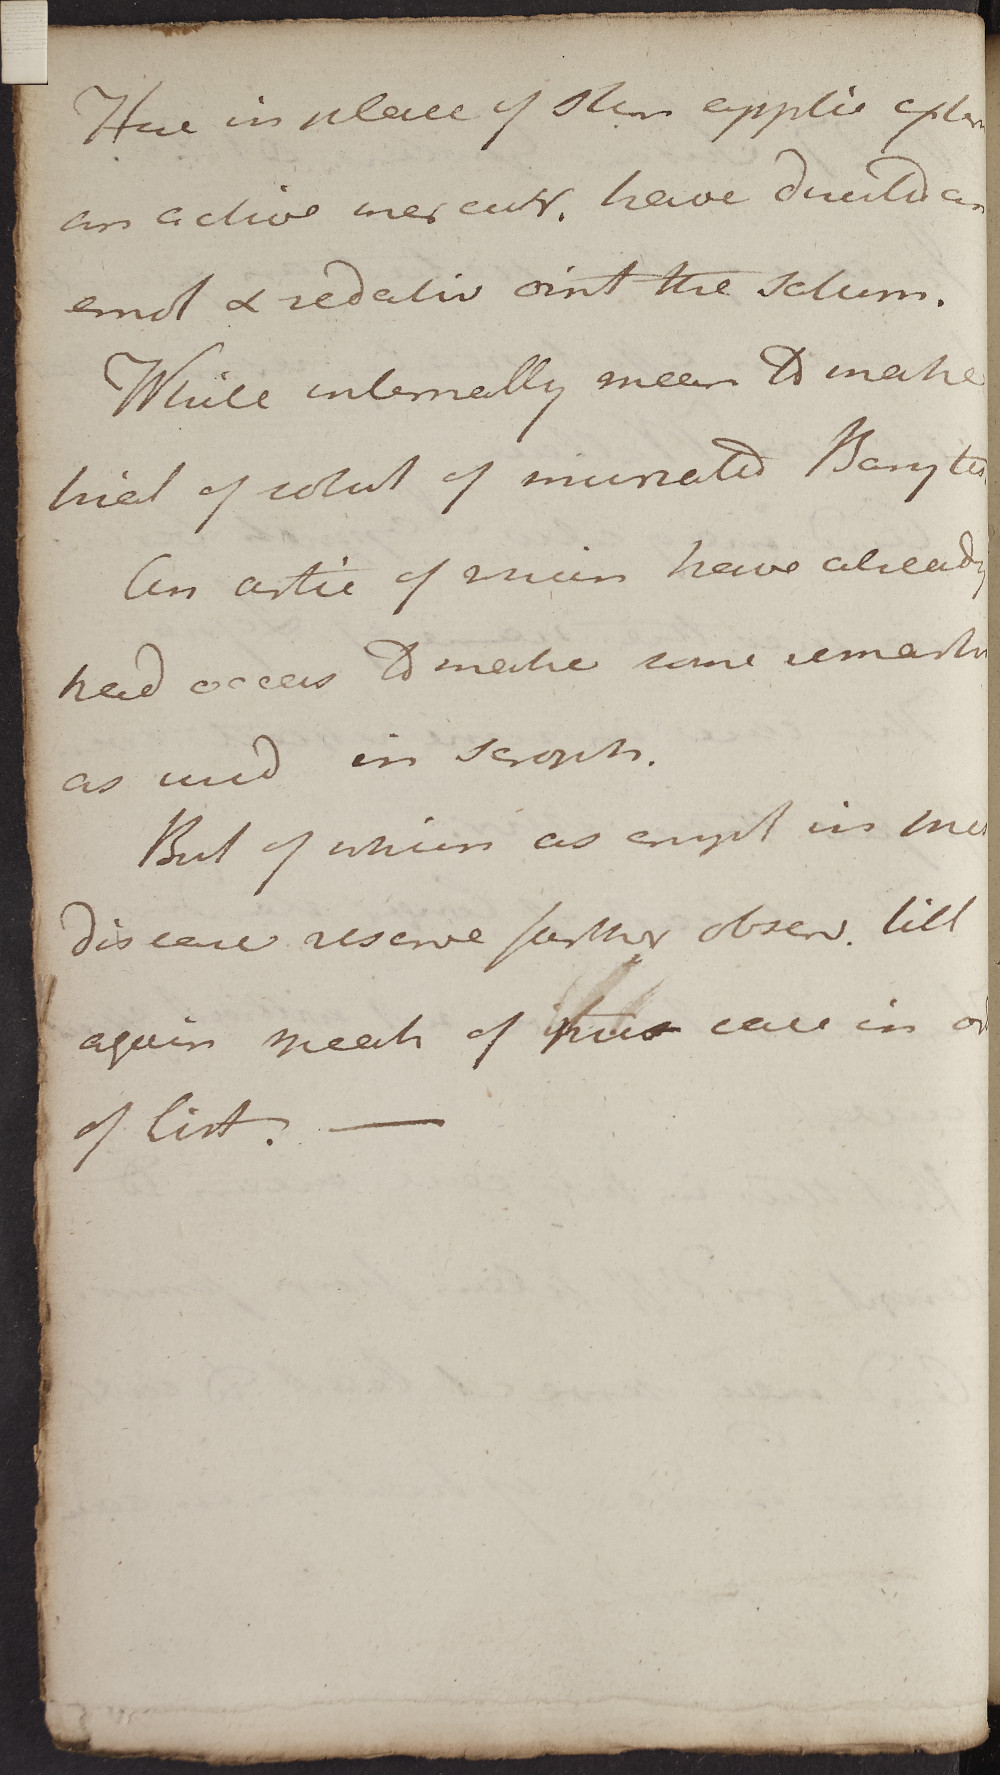 Hue in place of stim applic extern
an active mercur. have directed an
emol & sedativ oint the Saturn.
While internally mean to make
trial of solut of muriated Barytes
An artic of which have already
had occas to make some remarks
as used in scroph.
But of which as empl in
disease reserve further observ. till
again speak of this case in or
of list. —